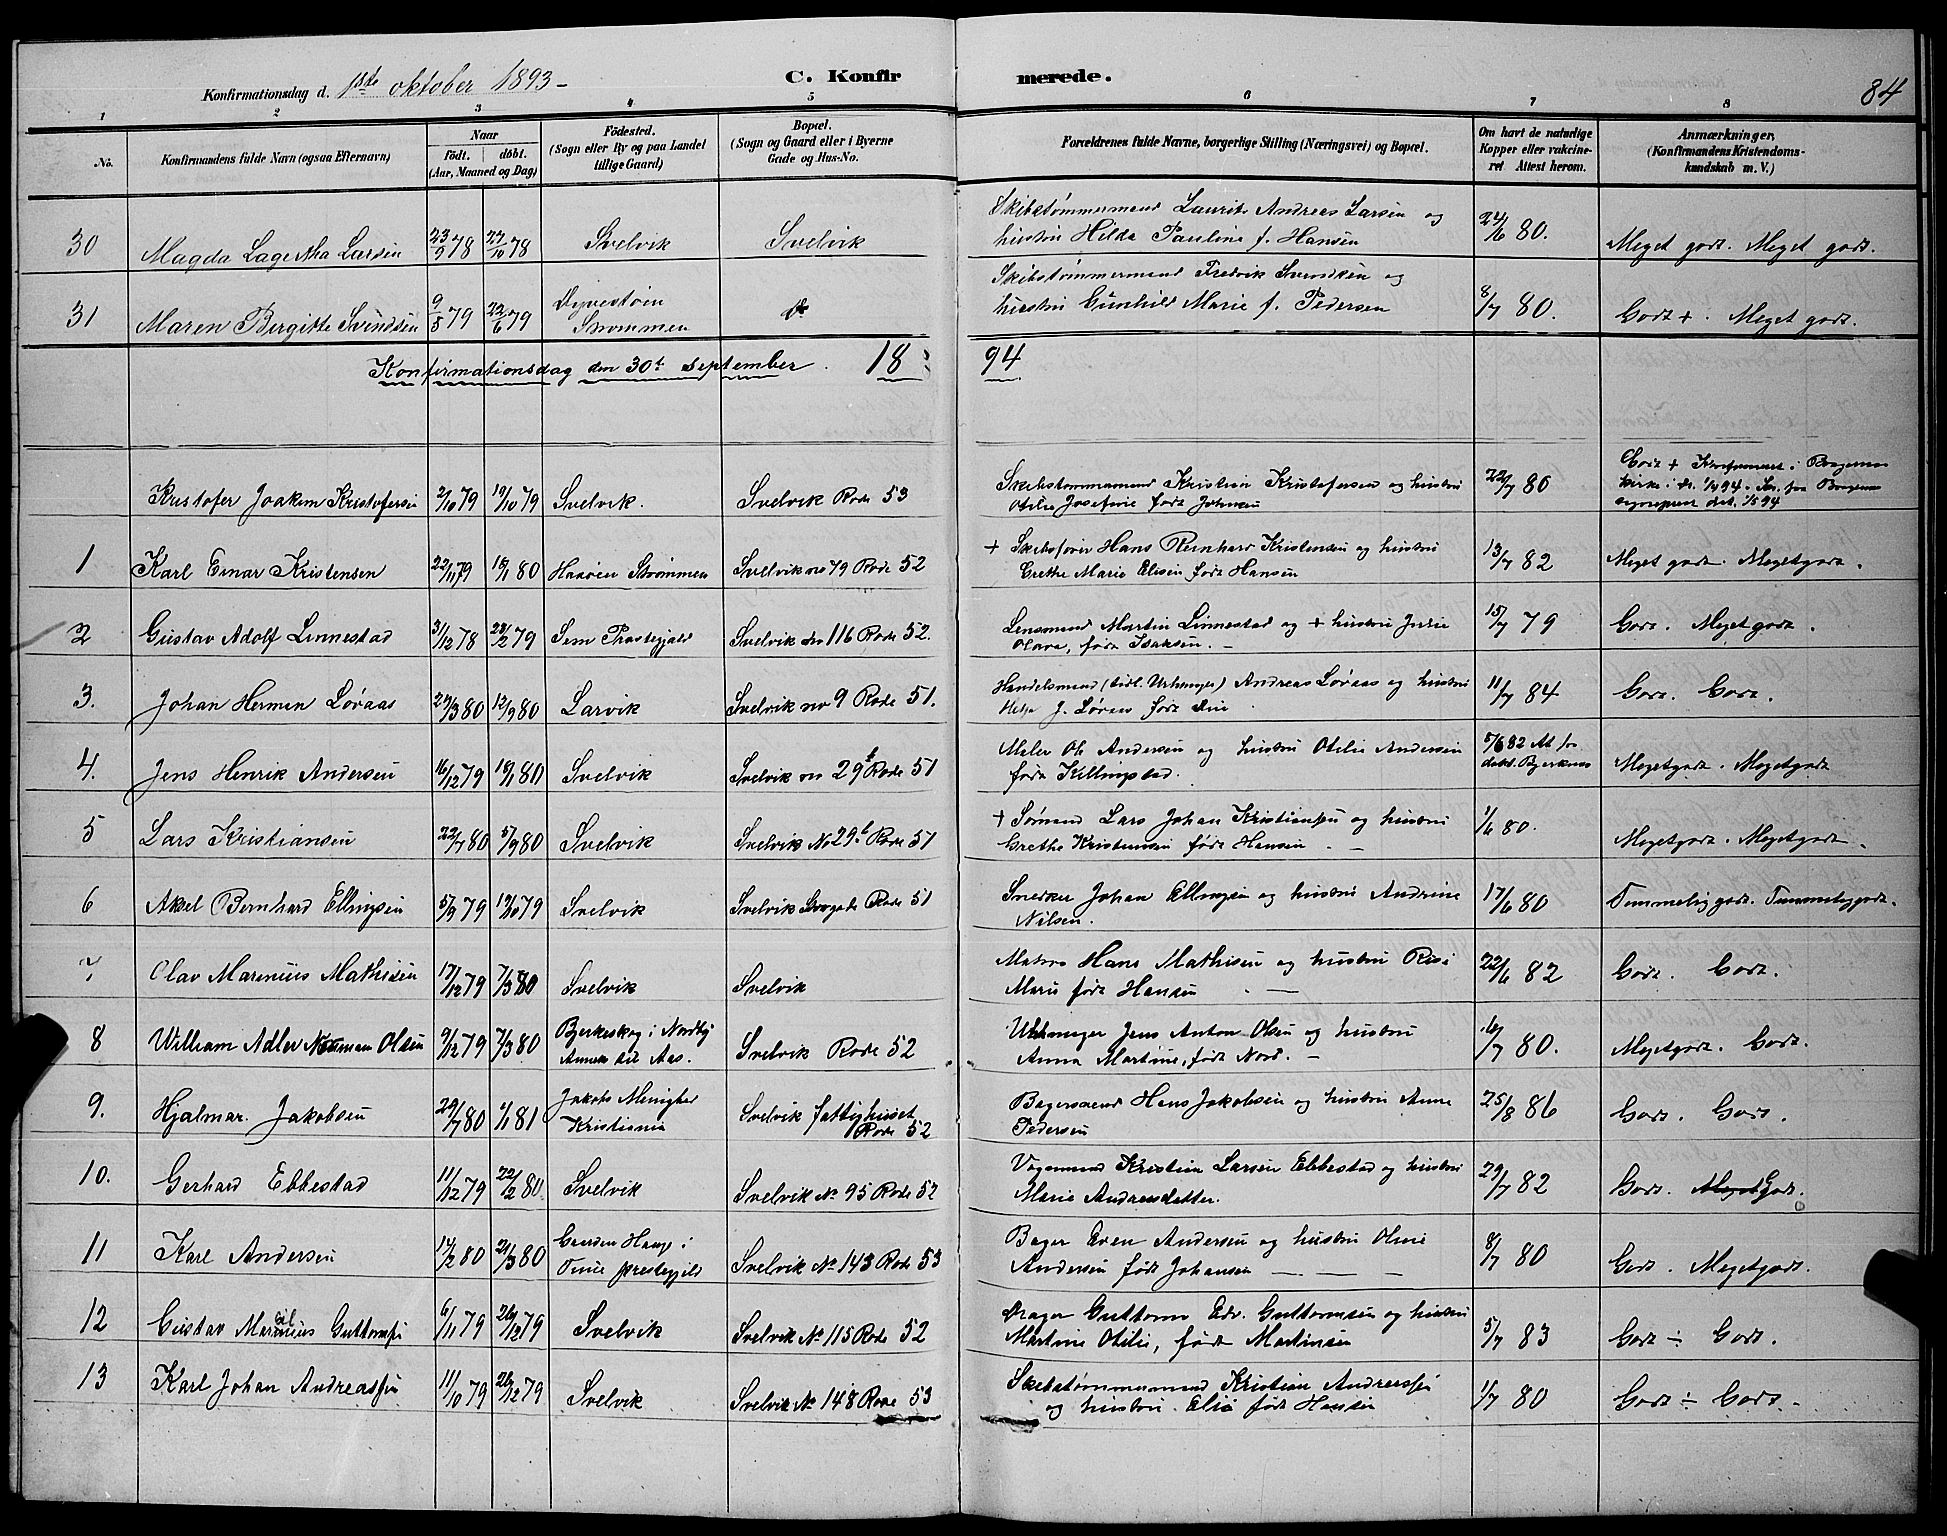 Konfirmationsdag d. 1ste oktober 1893 –
C. Konfirmerede.
84
1 2 3 4 5 6 7 8
No. Konfirmandens fulde Navn (ogsaa Efternavn)
Naar født. døbt. (Aar, Maaned og Dag)
Födested. (Sogn eller By og paa Landet tillige Gaard)
Bopæl. (Sogn og Gaard eller i Byerne Gade og Hus-No.
Forældrenes fulde Navne, borgerlige Stilling (Næringsvei) og Bopæl.
Om havt de naturlige Kopper eller vakcineret Attest herom.
Anmærkninger, (Konfirmandens Kristendomskundskab m. V.)
Skibstømmermand Laurits Andreas Larsen og
30 Magda Lagertha Larsen 23/9 78 27/10 78 Svelvik Svelvik hustru Hilda Pauline f. Hansen 24/6 80. Meget godt. Meget godt.
Skibstømmermand Fredrik Svendsen og
31 Maren Bergitte Svendsen 9/5 79 22/6 79 Strømmen hustru Gunhild Marie f. Pedersen 8/7 80. Godt + . Meget godt.
Konfirmationsdag den 30te September . 1894
Kristofer Joakim Kristofersen 2/10 79 19/10 79 Svelvik. Svelvik Rode 53 Skibstømmermand Kristian Kristofersen og hustru 22/7 80 Godt + Konfirmeret i Bragernes
Otilie Josefine født Johnsen kirke
1 Karl Einar Kristensen 22/11 79 18/1 80 Haaøen Strømmen Svelvik no 79 Rode 52 + Skibsfører Hans Reinhard Kristensen og hustru 13/7 82 Meget godt. Megetgodt.
Grethe Marie Elisen født Hansen
2 Gustav Adolf Linnestad 31/12 78 23/2 79 Sem Præstegjeld Svelvik no 116 Rode 52. Lensmand Martin Linnestad og + hustru Julie 15/7 79 Godt. Megetgodt.
Olava, født Isaksen. –
3. Johan Hermen Løvaas 27/3 80 12/9 80 Larvik Svelvik no 9 Rode 51. Handelsmand (tidl. Urmager) Andreas Løvaas og hustru 11/7 84 Godt. Godt.
J. Løvaas født
4. Jens Henrik Andersen 16/12 79 18/1 80 Svelvik Svelvik no 29b Rode 51 Maler Ole Andersen og hustru Otilie Andersen 5/6 82 Megetgodt. Megetgodt
født Killingstad.
5 Lars Kristiansen 22/7 80 5/9 80 Svelvik Svelvik No 29b Rode 51 + Sømand Lars Johan Kristiansen og hustru 1/6 80. Megetgodt. Megetgodt.
Grethe Kristensen født Hansen . –
6 Aksel Bernhard Ellingsen 5/9 79 19/10 79 Svelvik Svelvik Rode 51 Snedker Johan Ellingsen og hustru Andrine 17/6 80 Temmeliggodt. Temmeliggodt.
Nilsen.
7 Olav Marinius Mathisen 17/12 79 7/3 80 Svelvik Svelvik Matros Hans Mathisen og hustru 22/6 82 Godt. Godt.
Marie født Hansen . –
8 William Adler Norman Olsen 9/12 79 7/3 80 Bjerkeskog i Nordby Annex til Aas. Svelvik Rode 52 Urmager Jens Anton Olsen og hustru 16/7 80. Megetgodt. Godt.
Anna Martine, født Nord. –
9. Hjalmar. Jakobsen 29/7 80 1/1 81 Jakobs Menighed Kristiania Svelvik fattighuset Rode 52 Bagersvend Hans Jakobsen og hustru Anne 25/8 86 Godt. Godt.
Pedersen
10. Gerhard Ebbestad 11/12 79 22/2 80 Svelvik Svelvik No 95 Rode 52 Vognmand Kristian Larsen Ebbestad og hustru 29/7 82 Godt. Meget Godt.
Marie Andreasdatter.
11 Karl Andersen 17/2 80 21/3 80 Gaarden Haug i Tune prestegjeld Svelvik No 143 Rode 53 Bager Even Andersen og hustru Oline 8/7 80 Godt. Megetgodt.
Andersen født Johansen – – –
12 Gustav Marinius Guttormsen 6/11 79 26/12 79 Svelvik Svelvik No 115 Rode 52 Drager Guttorm Edv. Guttormsen og hustru 5/7 83 Godt ÷ Godt.
Martine Otilie, født Martinsen
13 Karl Johan Andreassen 11/10 79 26/12 79 Svelvik Svelvik No 148 Rode 53 Skibstømmermand Kristian Andreassen 1/7 80 Godt ÷ Godt.
og hustru Elise født Hansen